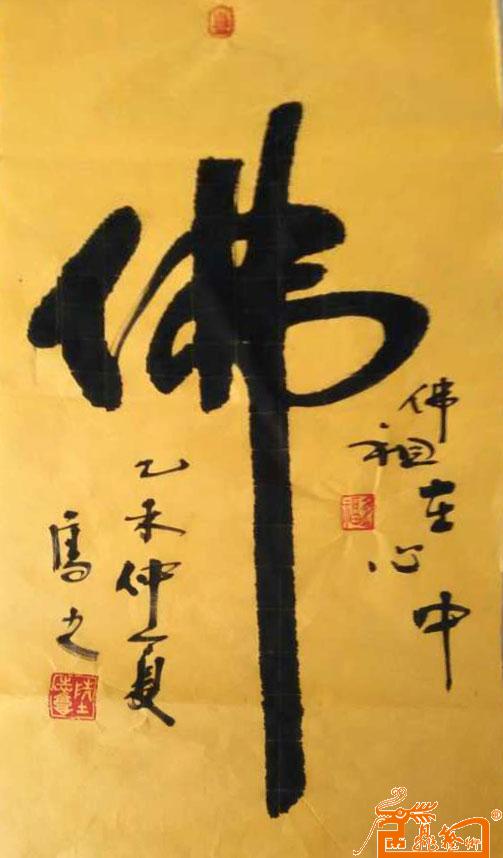 佛
佛祖在心中
乙未仲夏